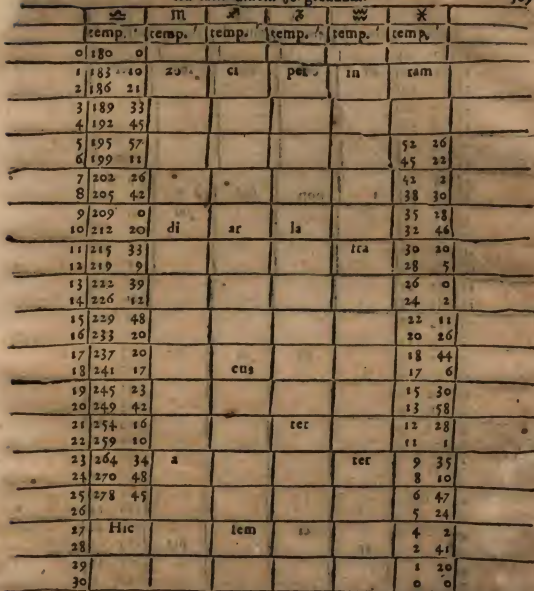 ♎ ♏ ♐ ♑ ♒ ♓
temp. ' temp. ' temp. ' temp. ' temp. ' temp. '
0 180 0
1 183 10 zo ci per in ram
2 186 21
3 189 33
4 192 45
5 195 57 52 26
6 199 11 45 22
7 202 26 42 2
8 205 42 38 30
9 209 0 35 28
10 212 20 di ar la 32 46
11 215 33 tra 30 20
12 219 9 28 5
13 222 39 26 0
14 226 12 24 2
15 229 48 22 11
16 233 20 20 26
17 237 20 18 44
18 241 17 cus 17 6
19 245 23 15 30
20 249 42 13 58
21 254 16 ter 12 28
22 259 10 11 1
23 264 34 a ter 9 35
24 270 48 8 10
25 278 45 6 47
26 5 24
27 Hic tem 4 2
28 2 41
29 1 20
30 0 0